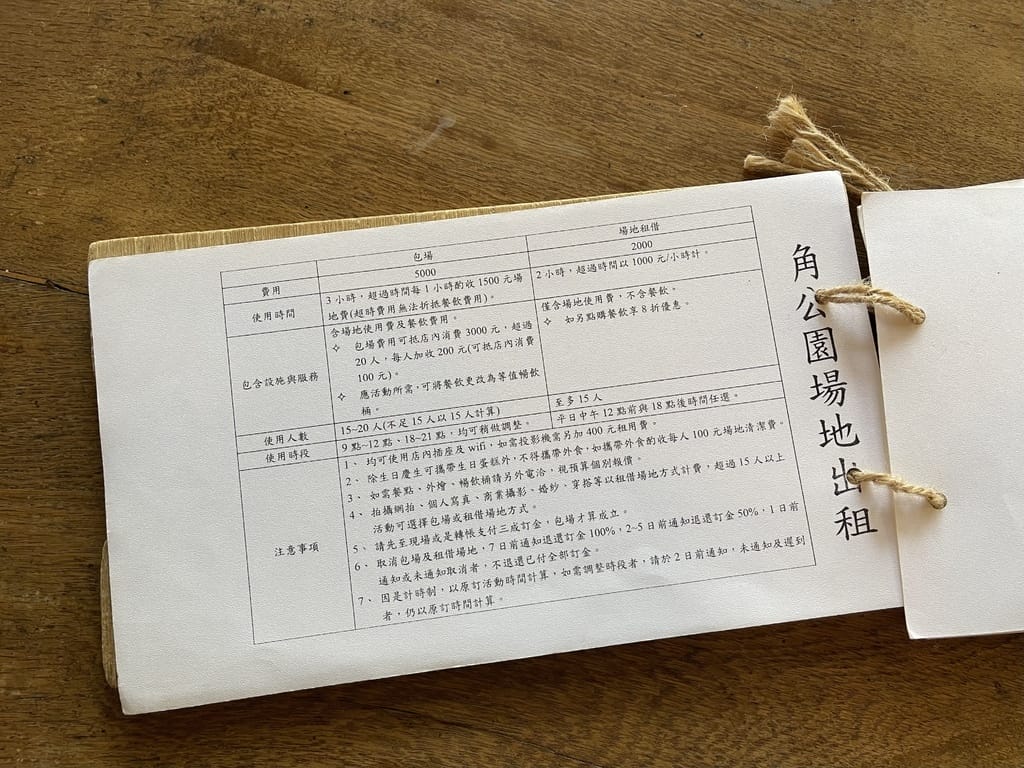 角公園場地出租
包場 場地租借
費用 5000 2000
使用時間 3 小時，超過時間每 1 小時酌收 1500 元場 2 小時，超過時間以 1000 元/小時計。
地費(超時費用無法折抵餐飲費用)。
包含設施與服務 含場地使用費及餐飲費用。 僅含場地使用費，不含餐飲。
✧ 包場費用可抵店內消費 3000 元，超過 ✧ 如另點購餐飲享 8 折優惠。
20 人，每人加收 200 元(可抵店內消費
100 元)。
✧ 應活動所需，可將餐飲更改為等值暢飲
桶。
使用人數 15~20 人(不足 15 人以 15 人計算) 至多 15 人
使用時段 9 點~12 點、18~21 點，均可稍做調整。 平日中午 12 點前與 18 點後時間任選。
注意事項
1、 均可使用店內插座及 wifi，如需投影機需另加 400 元租用費。
2、 除生日慶生可攜帶生日蛋糕外，不得攜帶外食，如攜帶外食酌收每人 100 元場地清潔費。
3、 如需餐點、外燴、暢飲桶請另外電洽，視預算個別報價。
4、 拍攝網拍、個人寫真、商業攝影、婚紗、穿搭等以租借場地方式計費，超過 15 人以上
活動可選擇包場或租借場地方式。
5、 請先至現場或是轉帳支付三成訂金，包場才算成立。
6、 取消包場及租借場地，7 日前通知退還訂金 100%，2~5 日前通知退還訂金 50%，1 日前
通知或未通知取消者，不退還已付全部訂金。
7、 因是計時制，以原訂活動時間計算，如需調整時段者，請於 2 日前通知，未通知及遲到
者，仍以原訂時間計算。